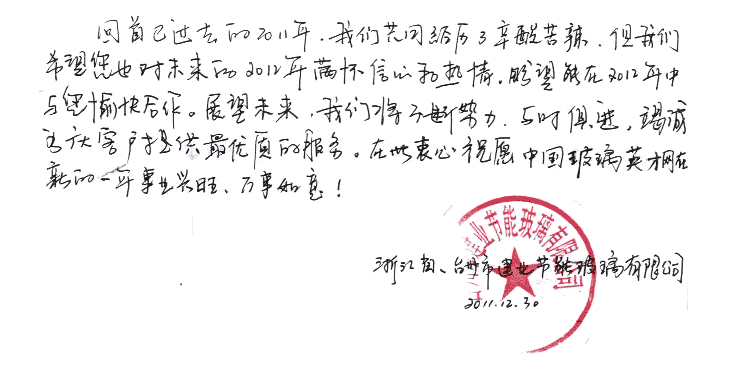 回首已过去的2011年，我们共同经历了辛酸苦辣，但我们
希望您也对未来的2012年满怀信心和热情。盼望能在2012年中
与您愉快合作。展望未来，我们将不断努力，与时俱进，竭诚
为广大客户提供最优质的服务。在此衷心祝愿中国玻璃英才网在
新的一年事业兴旺、万事如意！
业节能玻璃有限公司
浙江省、台州市建业节能玻璃有限公司
2011.12.30